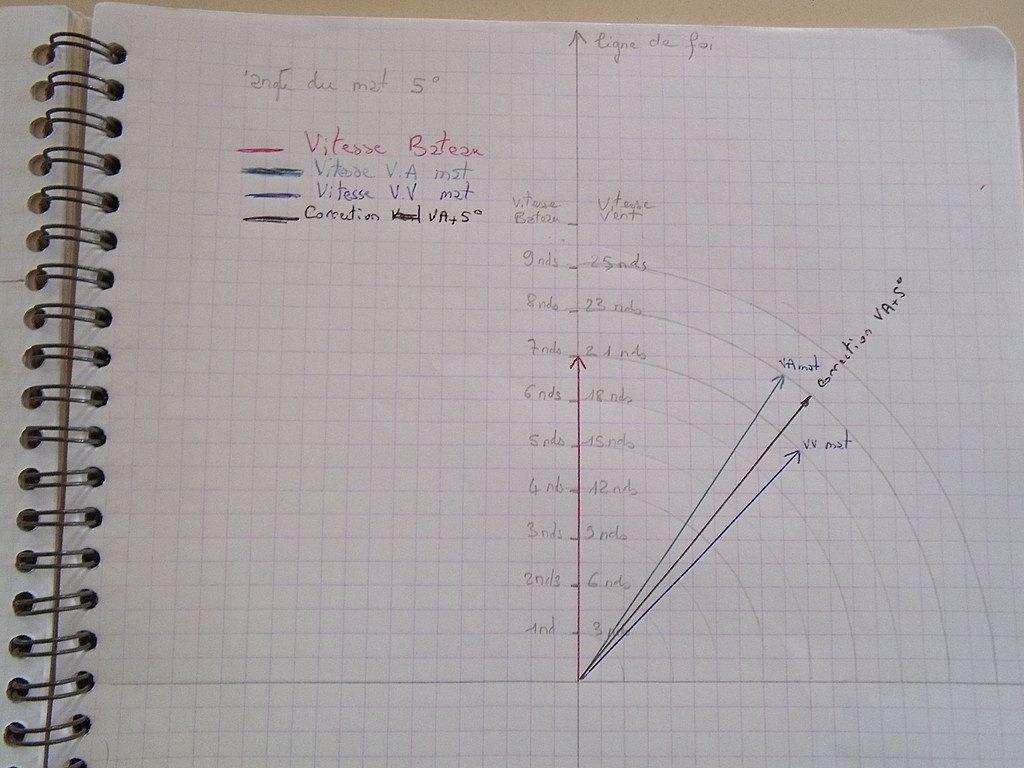 ligne de foi
du mat 5°
Vitesse Bateau
Vitesse V.A mat
Vitesse V.V mat
Correction VA+5°
Vitesse Bateau
Vitesse Vent
9 nds 25 nds
8 nds 23 nds
7 nds 21 nds
6 nds 18 nds
5 nds 15 nds
4 nds 12 nds
3 nds 9 nds
2 nds 6 nds
1 nd 3
VA mat
Correction VA+5°
VV mat